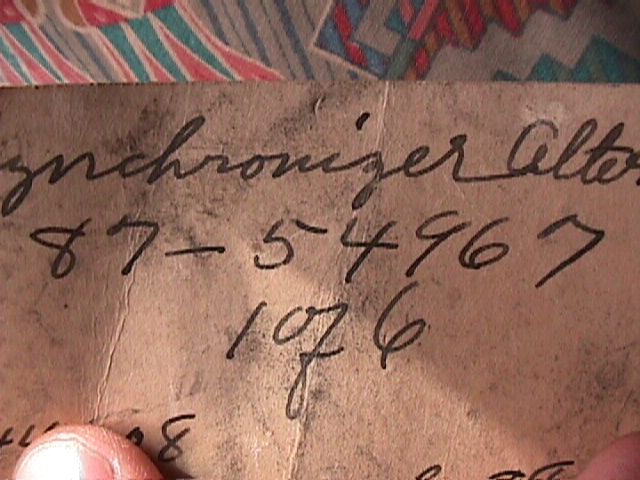 ynchronizer Alte
87-54967
1 of 6